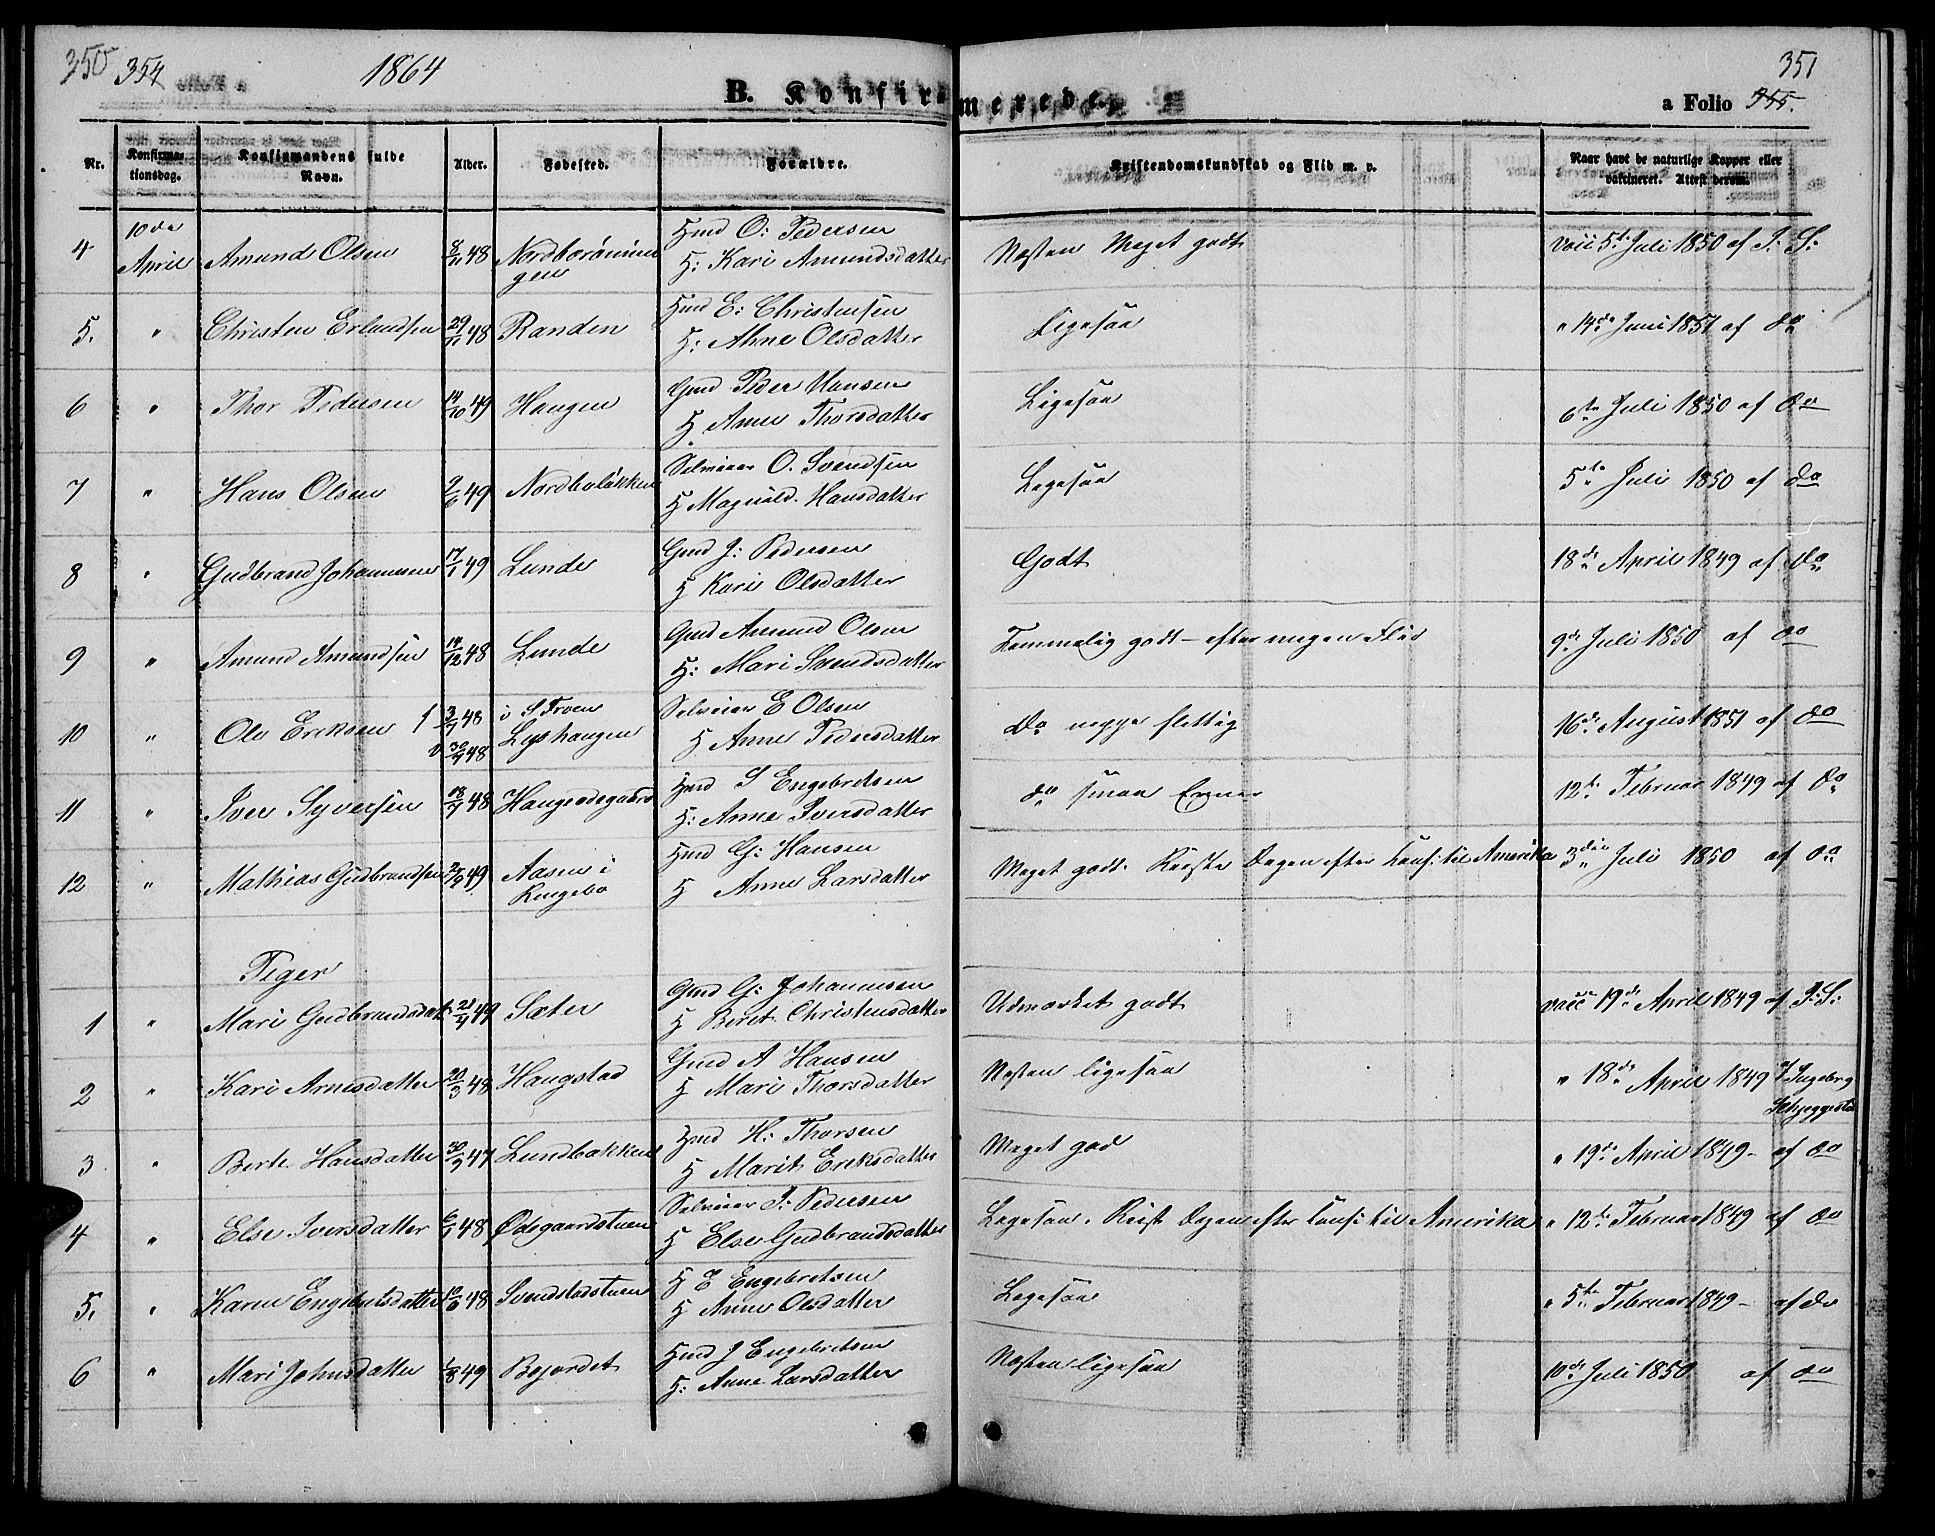 350 354 1864
B. Konfirmerede.
351
a Folio 355.
Nr. Konfirmationsdag. Konfirmandens fulde Navn. Alder. Fødested. Forældre. Kristendomskundskab og Flid m. v. Naar havt de naturlige Kopper eller vaktineret. Attest derom.
4 10de April Amund Olsen 8/11 48 Nordborönningen Hmd O: Pedersen H: Kari Amundsdatter Næsten Meget godt vacc 5te Juli 1850 af P: S:
5. " Christen Erlandsen 29/11 48 Randen Hmd E: Christensen H: Ahne Olsdatter Ligesaa " 14de Juni 1851 af do
6 " Thor Pedersen 14/10 49 Haugen Gmd Peder Hansen H Anne Thorsdatter Ligesaa 6te Juli 1850 af do
7 " Hans Olsen 9/6 49 Nordboløkken Selveier O. Svendsen H Magnild. Hansdatter Ligesaa 5te Juli 1850 af do
8 " Gudbrand Johannesen 17/1 49 Lunde Gmd J: Pedersen H Kari Olsdatter Godt 18de April 1849 af do
9 " Amund Amundsen 14/12 48 Lunde Gmd Amund Olsen H: Mari Svendsdatter Temmelig godt - efter megen Flid 9de Juli 1850 af do
10 " Ole Eriksen f 3/7 48 v 30/7 48 i S Troen Lyshaugen Selveier E Olsen H Anne Pedersdatter do neppe flittig 16de August 1851 af do
11 " Iver Syversen 18/7 48 Haugesdegaard Hmd S Engebretsen H: Anne Iversdatter do smaa Evner 12te Februar 1849 af do
12 " Mathias Gudbrandsen 2/2 49 Aasen i Ringebo Hmd G: Hansen H Anne Larsdatter Meget godt. Reiste Dagen efter Conf: til Amerika 3die Juli 1850 af do
Piger
1 " Mari Gudbrandsdatr 21/4 49 Sæter Gmd G: Johannesen H Beret Christensdatter Udmærket godt vacc 19de April 1849 af P: S:
2 " Kari Arnesdatter 20/3 48 Haugstad Gmd A Hansen H Mari Thorsdatter Næsten ligesaa " 18de April 1849 J Ingebrg Schjeggestd
3 " Berte Hansdatter 30/9 47 Lundbakken Hmd H: Thorsen H Marit Eriksdatter Meget god " 19de April 1849 - af do
4 " Else Iversdatter 6/1 48 Ødegaardstuen Selveier I: Pedersen H Else Gudbrandsdatter Ligesaa. Reist Dagen efter Conf: til Amerika " 12te Februar 1849 af do
5. " Karen Engebretsdatter 12/6 48 Svendstadstuen H E Engebretsen H Anne Olsdatter Ligesaa " 5te Februar 1849 - af do
6 " Mari Johnsdatter 1/8 49 Bojordet Hmd J Engebretsen H: Anne Larsdatter Næsten ligesaa 10de Juli 1850 af do